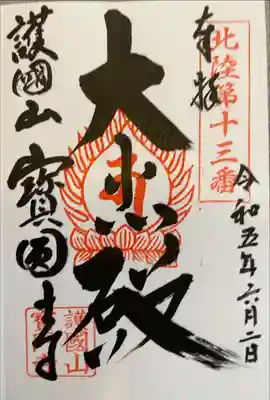 北陸第十三番
奉拝
令和五年六月二日
大悲殿
護國山 寶圓寺
護國山